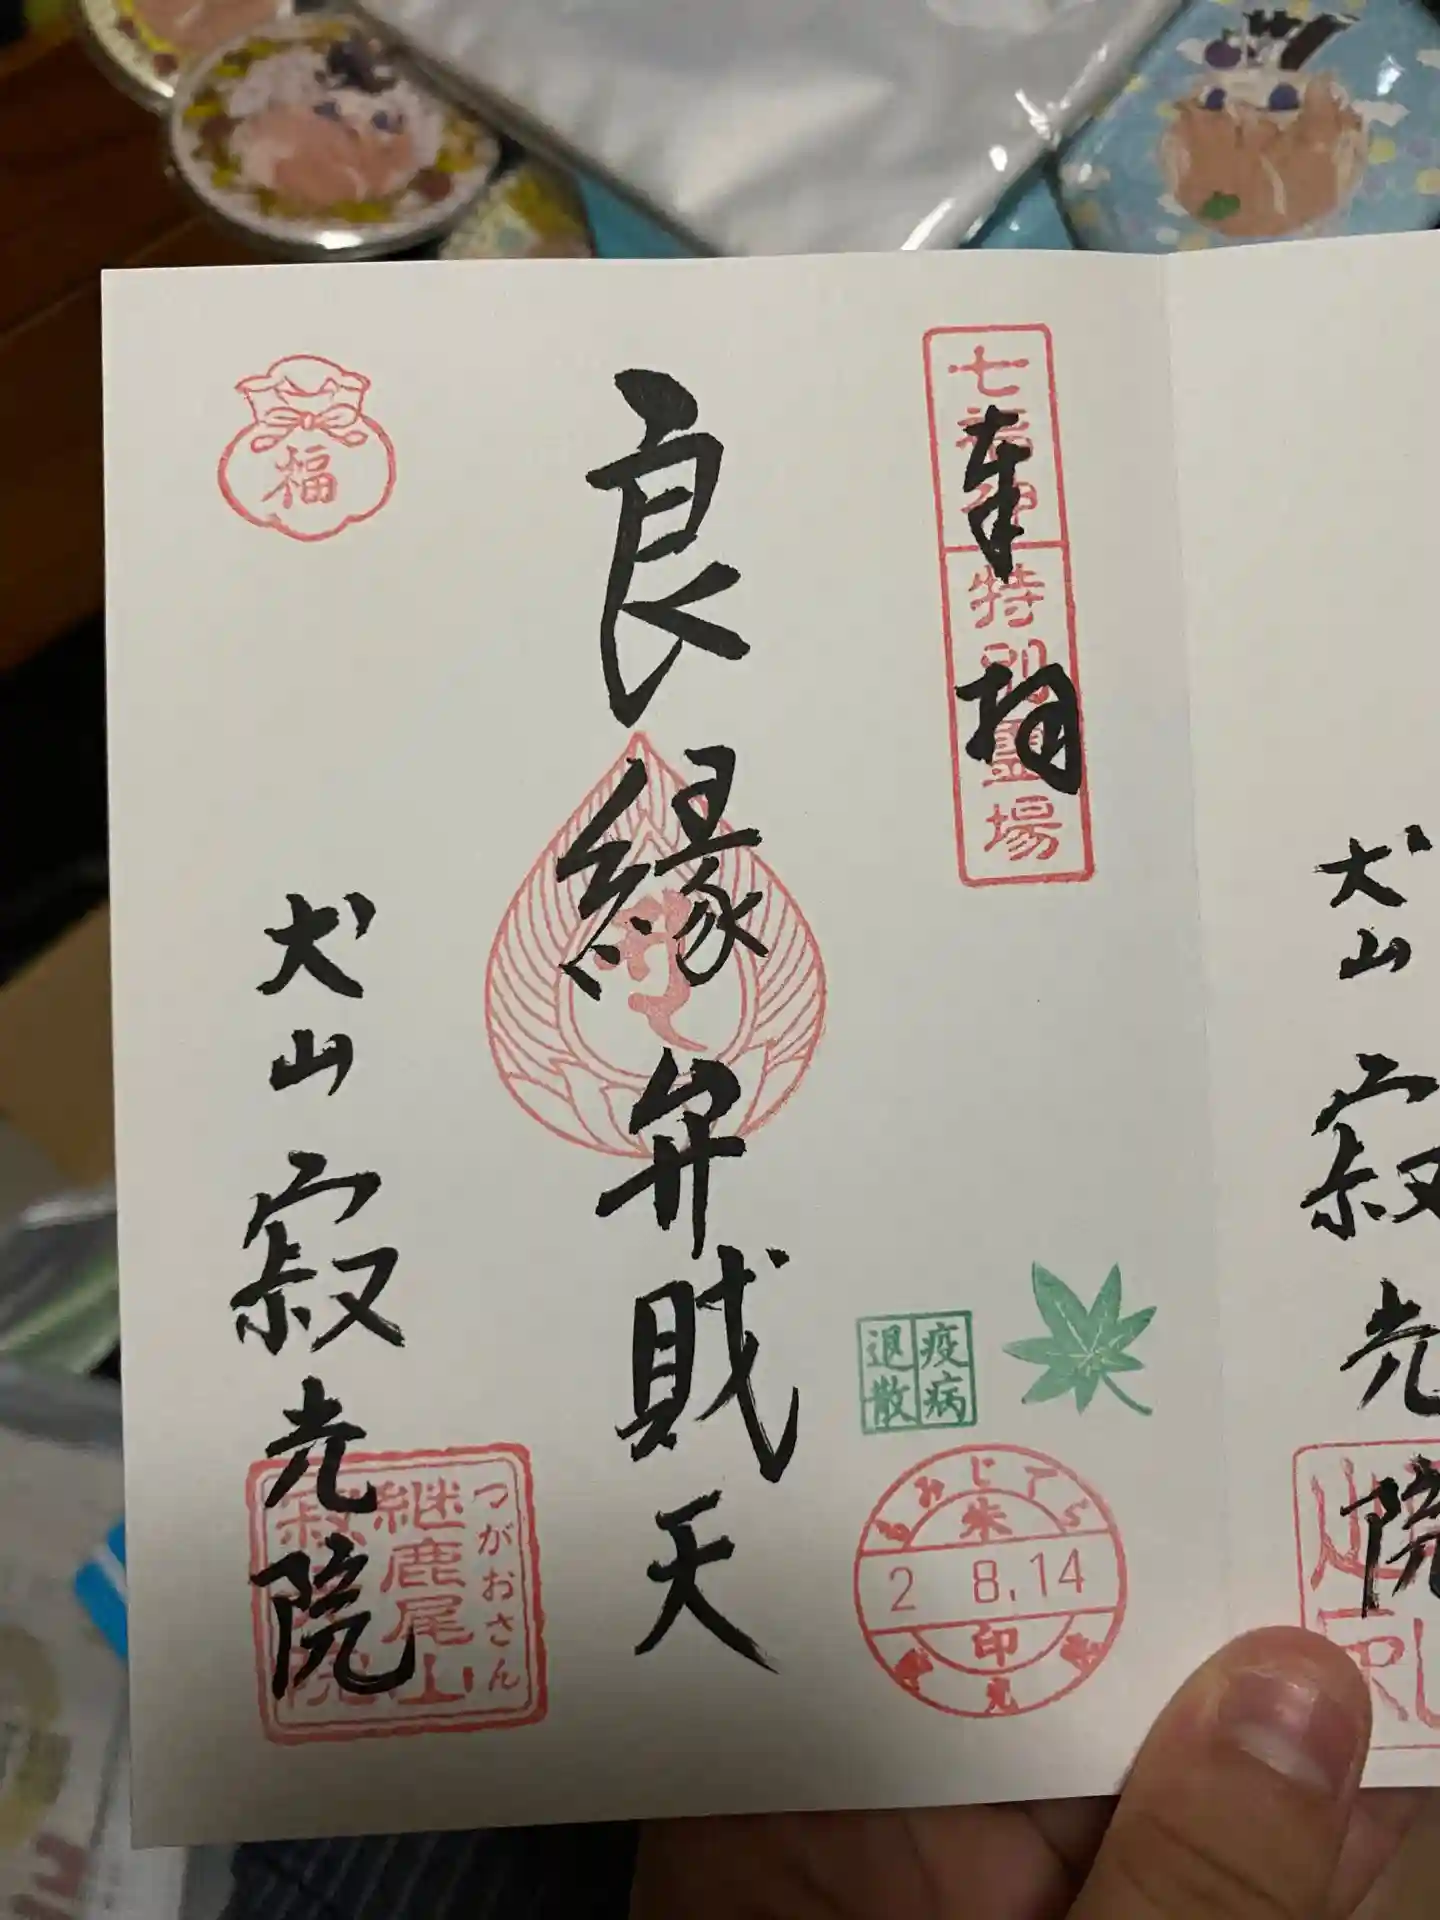 七福神
特別霊場
奉拝
良縁弁財天
福
犬山 寂光院
つがおさん
継鹿尾山
寂光院
疫病
退散
もみじでら
朱
2 8.14
印
犬山 寂光院